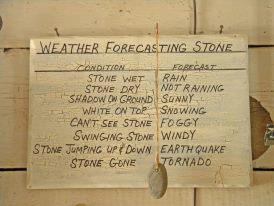 WEATHER FORECASTING STONE
CONDITION FORECAST
STONE WET RAIN
STONE DRY NOT RAINING
SHADOW ON GROUND SUNNY
WHITE ON TOP SNOWING
CAN'T SEE STONE FOGGY
SWINGING STONE WINDY
STONE JUMPING UP & DOWN EARTHQUAKE
STONE GONE TORNADO